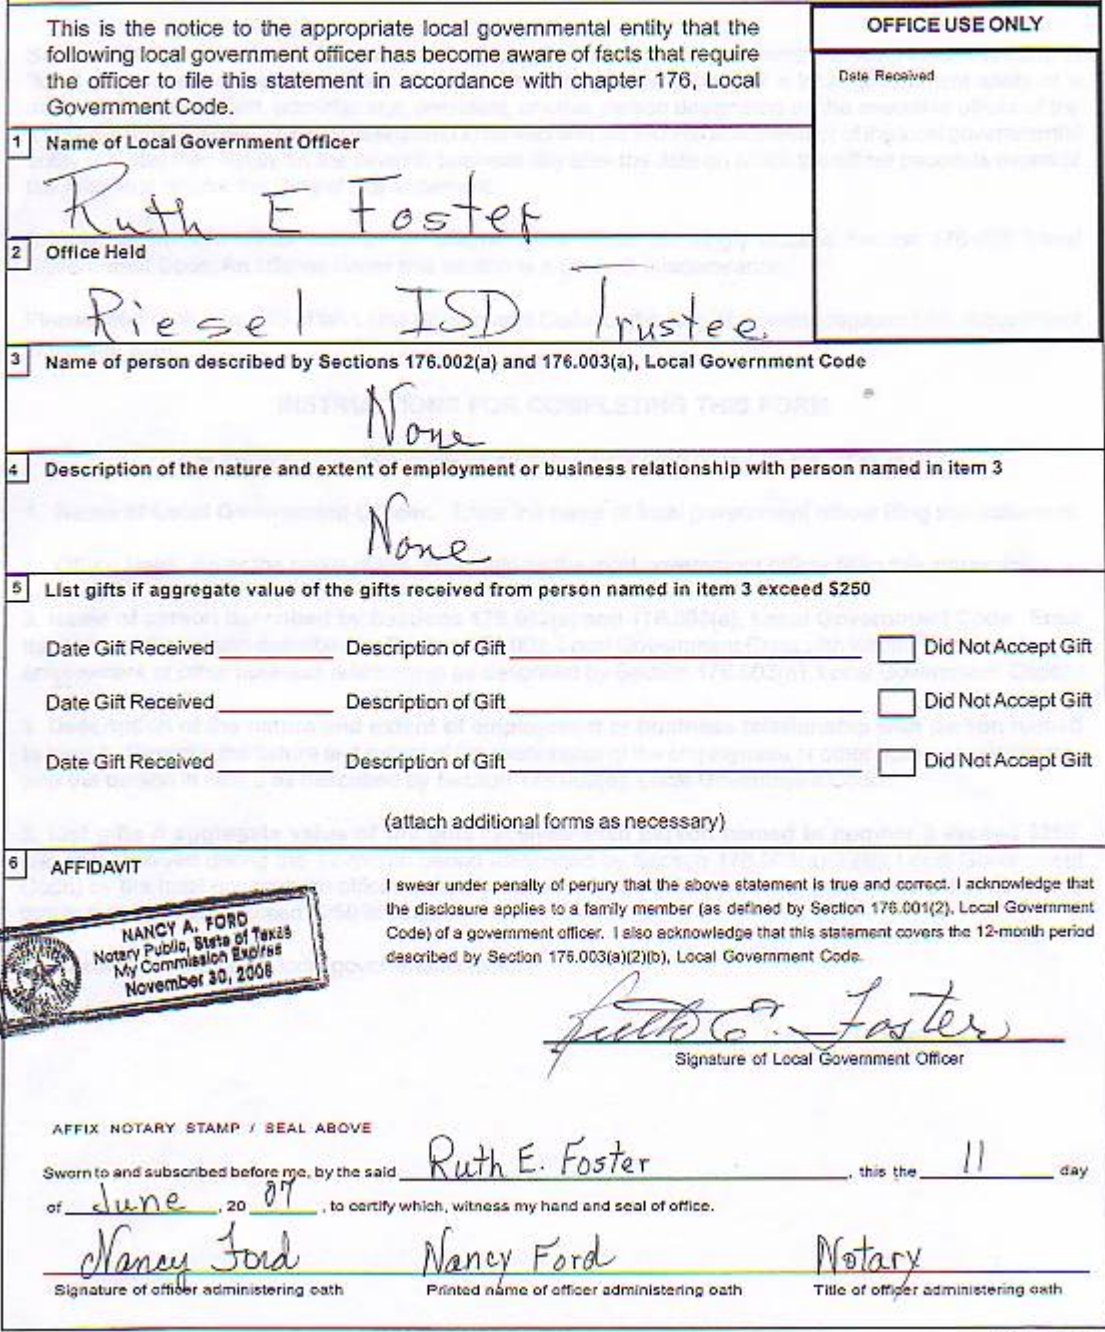 This is the notice to the appropriate local governmental entity that the
following local government officer has become aware of facts that require
the officer to file this statement in accordance with chapter 176, Local
Government Code.
OFFICE USE ONLY
Date Received
1 Name of Local Government Officer
Ruth E Foster
2 Office Held
Riesel ISD Trustee
3 Name of person described by Sections 176.002(a) and 176.003(a), Local Government Code
None
4 Description of the nature and extent of employment or business relationship with person named in item 3
None
5 List gifts if aggregate value of the gifts received from person named in item 3 exceed $250
Date Gift Received Description of Gift Did Not Accept Gift
Date Gift Received Description of Gift Did Not Accept Gift
Date Gift Received Description of Gift Did Not Accept Gift
(attach additional forms as necessary)
6 AFFIDAVIT
I swear under penalty of perjury that the above statement is true and correct. I acknowledge that
the disclosure applies to a family member (as defined by Section 176.001(2), Local Government
Code) of a government officer. I also acknowledge that this statement covers the 12-month period
described by Section 176.003(a)(2)(b), Local Government Code.
NANCY A. FORD
Notary Public, State of Texas
My Commission Expires
November 30, 2008
Ruth E. Foster
Signature of Local Government Officer
AFFIX NOTARY STAMP / SEAL ABOVE
Sworn to and subscribed before me, by the said Ruth E. Foster, this the 11 day
of June, 20 07, to certify which, witness my hand and seal of office.
Nancy Ford Nancy Ford Notary
Signature of officer administering oath Printed name of officer administering oath Title of officer administering oath